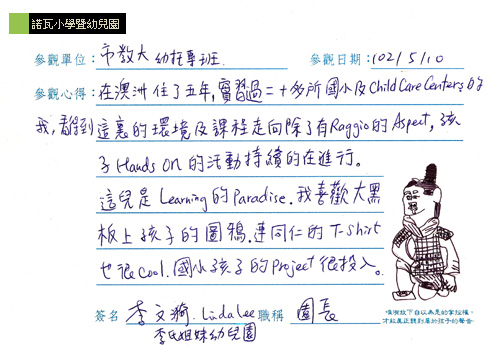 諾瓦小學暨幼兒園
參觀單位：市教大幼托專班 參觀日期：102/5/10
參觀心得：在澳洲住了五年,實習過二十多所國小及Child Care Centers的
我,看到這裏的環境及課程走向除了有Raggio的Aspect,孩
子Hands On的活動持續的在進行。
這兒是Learning的Paradise.我喜歡大黑
板上孩子的圖鴉.連同仁的T-shirt
也很Cool.國小孩子的Project很投入。
唯有放下自以為是的掌控權，
才能真正聽到屬於孩子的聲音
簽名 李文漪.Linda Lee 職稱 園長
李氏姐妹幼兒園